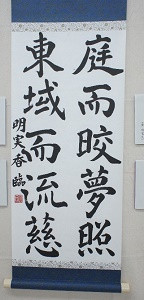 庭而皎夢照
東域而流慈
明実香臨